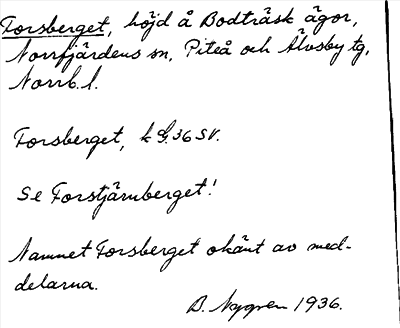 Forsberget, höjd å Bodträsk ägor,
Norrfjärdens sn, Piteå och Älvsby tg,
Norrb. l.
Forsberget, k G. 36 SV.
Se Forstjärnberget!
Namnet Forsberget okänt av med-
delarna.
B. Nygren 1936.